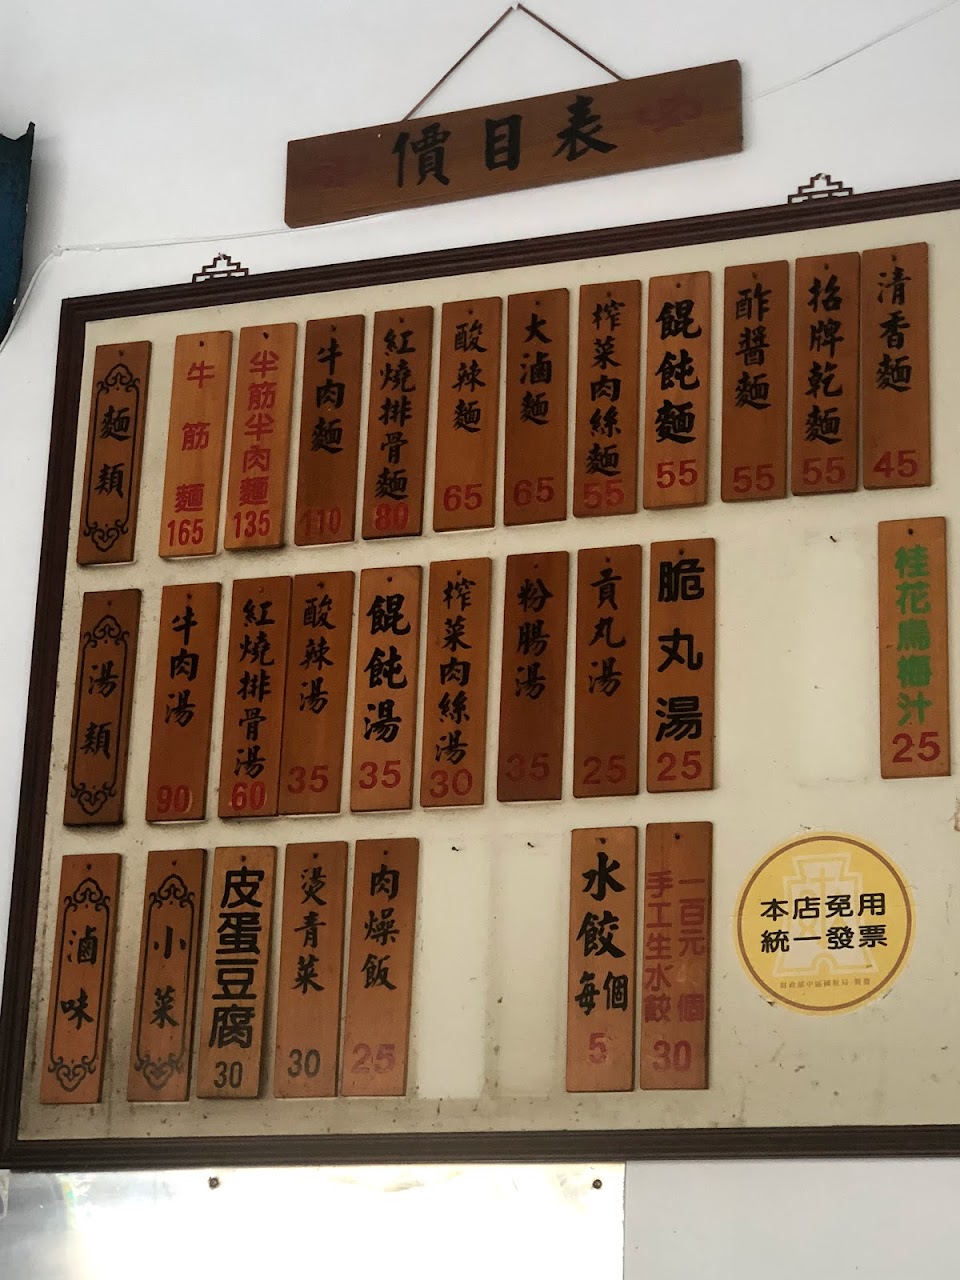 價目表
麵類
牛筋麵
165
半筋半肉麵
135
牛肉麵
110
紅燒排骨麵
80
酸辣麵
65
大滷麵
65
榨菜肉絲麵
55
餛飩麵
55
酢醬麵
55
招牌乾麵
55
清香麵
45
湯類
牛肉湯
90
紅燒排骨湯
60
酸辣湯
35
餛飩湯
35
榨菜肉絲湯
30
粉腸湯
35
貢丸湯
25
脆丸湯
25
桂花烏梅汁
25
滷味
小菜
皮蛋豆腐
30
燙青菜
30
肉燥飯
25
水餃每個
5
一百元 個
手工生水餃
30
本店免用
統一發票